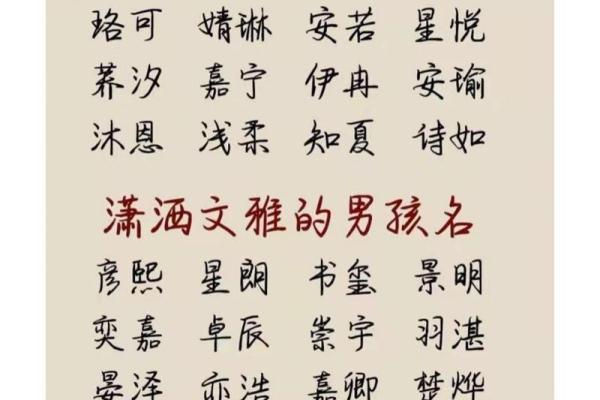 珞可 婧琳 安若 星悦
荞汐 嘉宁 伊冉 安瑜
沐恩 浅柔 知夏 诗如
潇洒文雅的男孩名
彦熙 星朗 书玺 景明
奕嘉 卓辰 崇宇 羽湛
晏泽 亦浩 嘉卿 楚烨